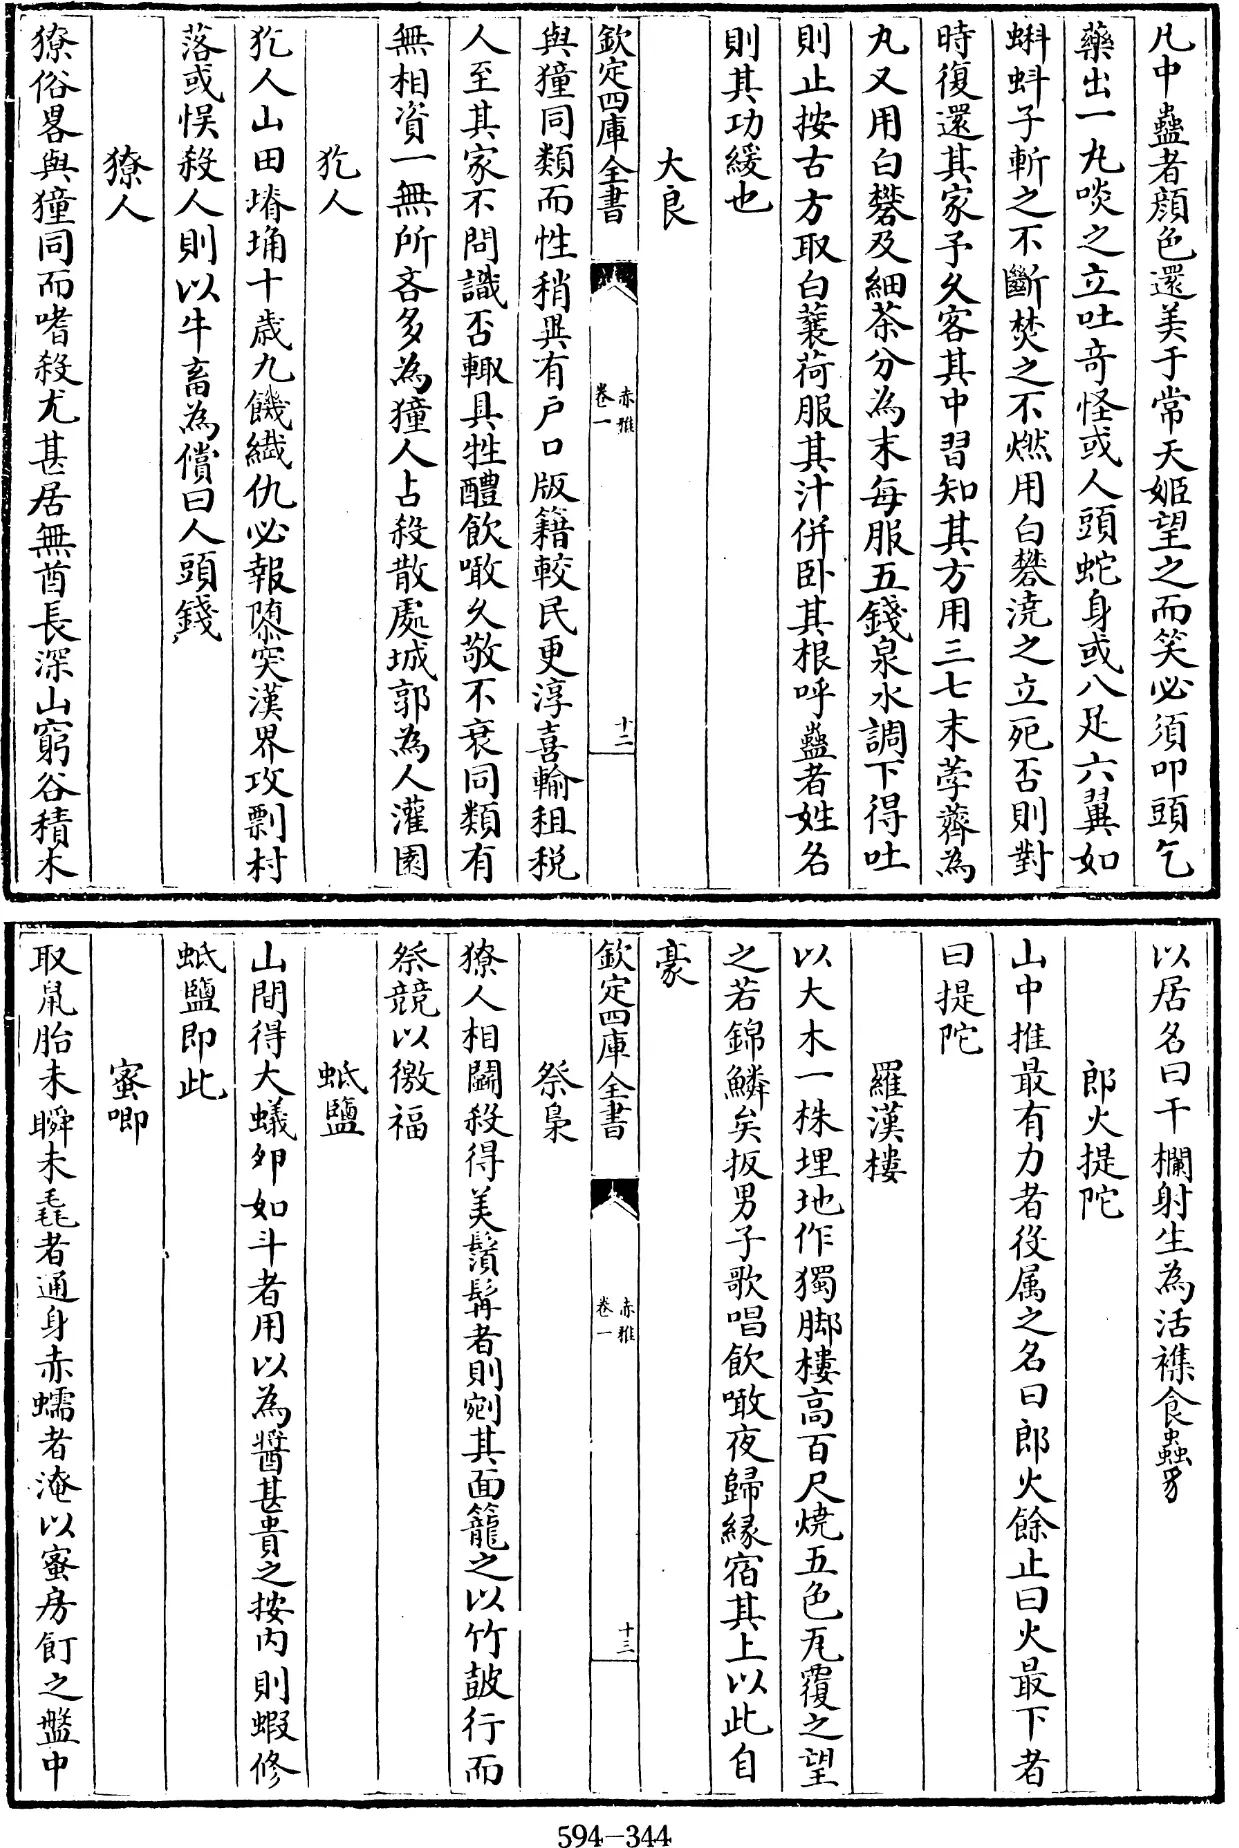 凡中蠱者顔色還美于常天姬望之而笑必須叩頭乞
藥出一丸啖之立吐奇怪或人頭蛇身或八足六翼如
蝌蚪子斬之不斷焚之不燃用白礬澆之立死否則對
時復還其家予久客其中習知其方用三七末荸薺為
丸又用白礬及細茶分為末每服五錢泉水調下得吐
則止按古方取白蘘荷服其汁併卧其根呼蠱者姓名
則其功緩也
大良
欽定四庫全書
赤雅
卷一
十二
與獞同類而性稍異有戶口版籍較民更淳喜輸租税
人至其家不問識否輙具牲醴飲噉久敬不衰同類有
無相資一無所吝多為獞人占殺散處城郭為人灌園
犵人
犵人山田塉埆十歳九饑纎仇必報隳突漢界攻剽村
落或悮殺人則以牛畜為償曰人頭錢
獠人
獠俗畧與獞同而嗜殺尤甚居無酋長深山窮谷積木
以居名曰干欄射生為活襍食蟲豸
郎火提陀
山中推最有力者役属之名曰郎火餘止曰火最下者
曰提陀
羅漢樓
以大木一株埋地作獨脚樓高百尺燒五色瓦覆之望
之若錦鱗矣扳男子歌唱飲噉夜歸縁宿其上以此自
豪
欽定四庫全書
赤雅
卷一
十三
祭梟
獠人相鬭殺得美鬚髯者則剜其面籠之以竹鼓行而
祭競以徼福
蚳鹽
山間得大蟻夘如斗者用以為醬甚貴之按内則蝦修
蚳鹽即此
蜜唧
取䑕胎未瞬未毳者通身赤蠕者淹以蜜房飣之盤中
594-344